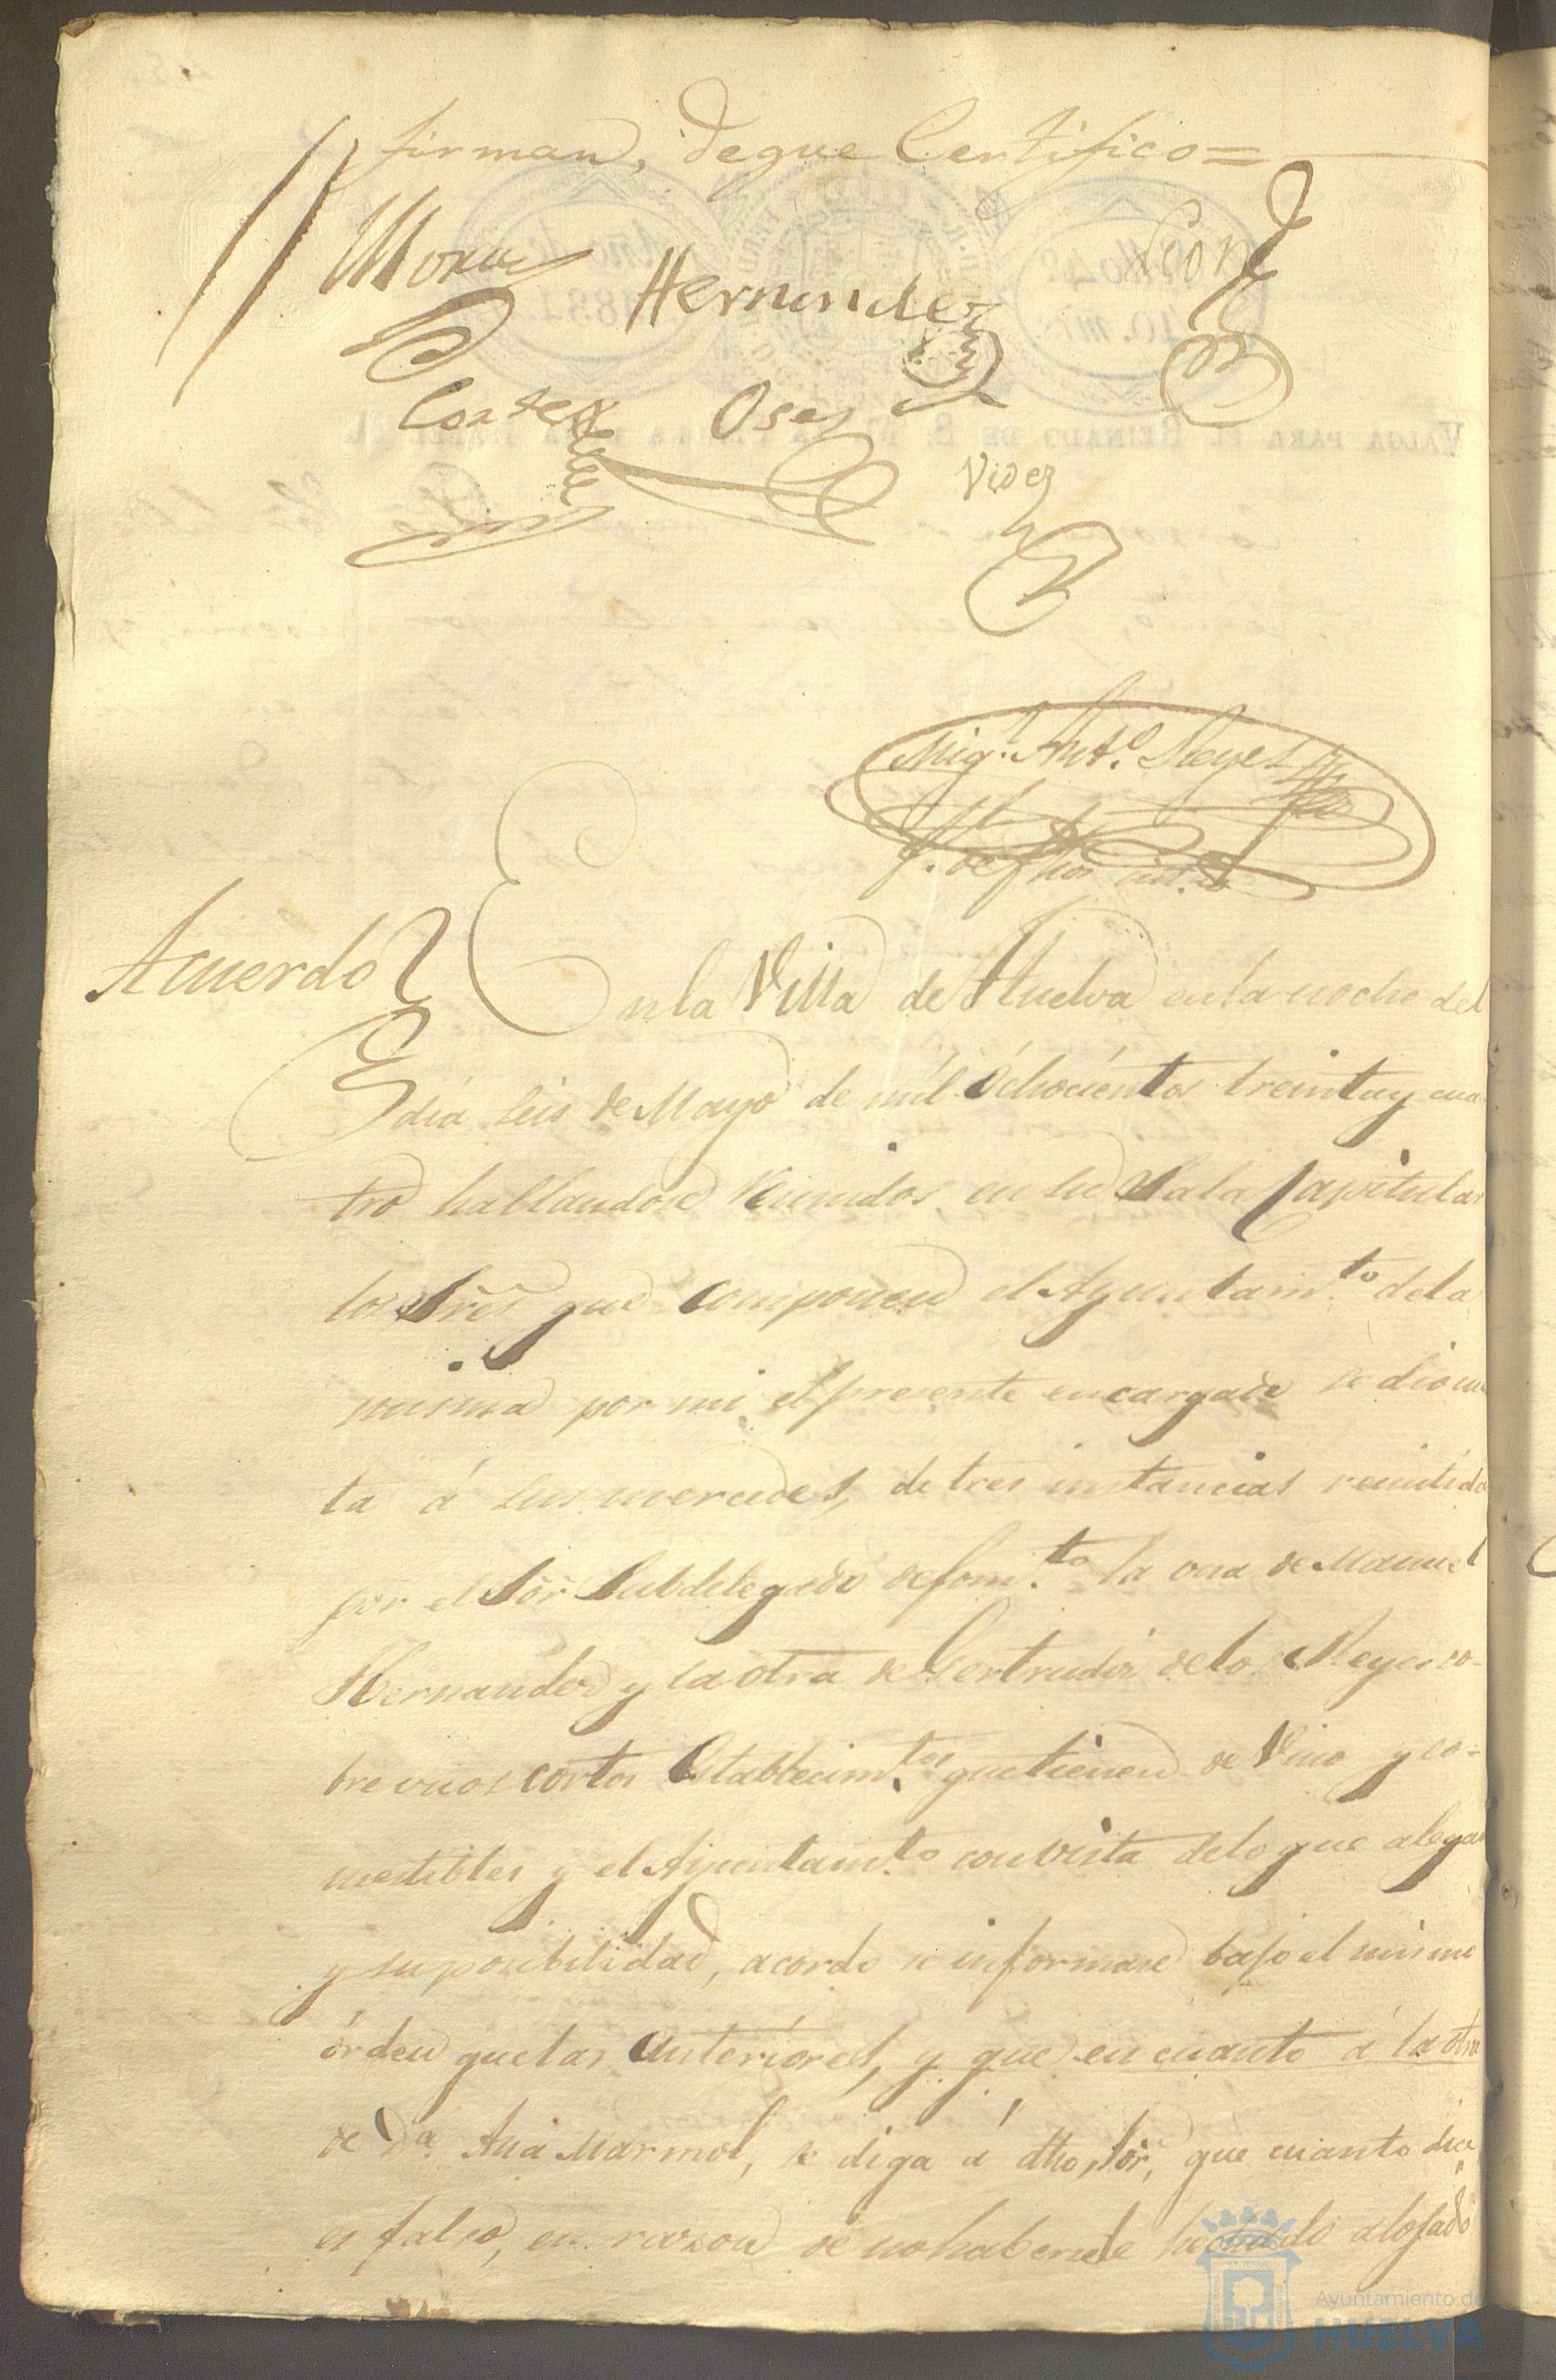 firman, de que Certifico =
Mora
Hernandez
Leon
Cortes
Oses
Videz
Mig.l Ant.o Reyes
Acuerdo
En la Villa de Huelva en la noche del
dia seis de Mayo de mil ochocientos treinta y cua-
tro hallandose reunidos en su Sala Capitular
los Sres que componen el Ayuntam.to de la
misma por mi el presente encargado se dio cuen
ta á sus mercedes, de tres instancias remitidas
por el Sor Subdelegado de fom.to la una de Manuel
Hernandez y la otra de Gertrudis de los Reyes so-
bre unos cortos Establecim.tos que tienen de Vino y co-
mestibles y el Ayuntam.to con vista de lo que alegan
y su posibilidad, acordo se informase bajo el mismo
órden que las anteriores, y que en cuanto á la otra
de D.a Ana Marmol, se diga á dho, Sor, que cuanto dice
es falso, en razon de no haberse le hechado alojado
Ayuntamiento de
HUELVA